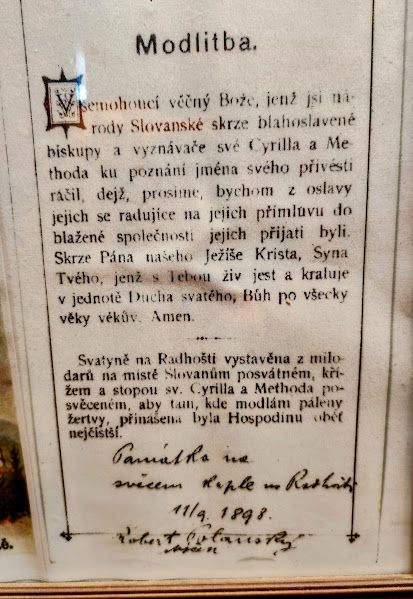 Modlitba.
Všemohoucí věčný Bože, jenž jsi ná-
rody Slovanské skrze blahoslavené
biskupy a vyznavače své Cyrilla a Me-
thoda ku poznání jména svého přivésti
ráčil, dejž, prosíme, bychom z oslavy
jejich se radujíce na jejich přímluvu do
blažené společnosti jejich přijati byli.
Skrze Pána našeho Ježíše Krista, Syna
Tvého, jenž s Tebou živ jest a kraluje
v jednotě Ducha svatého, Bůh po všecky
věky věkův. Amen.
Svatyně na Radhošti vystavěna z milo-
darů na místě Slovanům posvátném, kří-
žem a stopou sv. Cyrilla a Methoda po-
svěceném, aby tam, kde modlám páleny
žertvy, přinášena byla Hospodinu oběť
nejčistší.
Památka na
svěcení kaple na Radhošti
11/9. 1898.
Robert Polanský